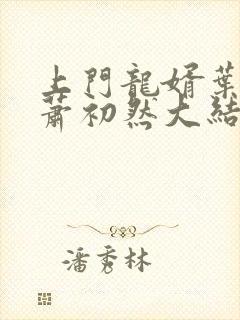 上門龍婿葉
蕭初然大結
潘秀林